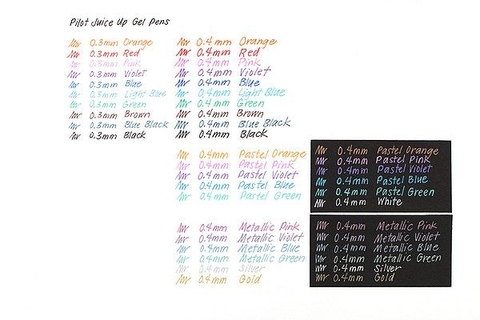 Pilot Juice Up Gel Pens
0.3mm Orange
0.3mm Red
0.3mm Pink
0.3mm Violet
0.3mm Blue
0.3mm Light Blue
0.3mm Green
0.3mm Brown
0.3mm Blue Black
0.3mm Black
0.4mm Orange
0.4mm Red
0.4mm Pink
0.4mm Violet
0.4mm Blue
0.4mm Light Blue
0.4mm Green
0.4mm Brown
0.4mm Blue Black
0.4mm Black
0.4mm Pastel Orange
0.4mm Pastel Pink
0.4mm Pastel Violet
0.4mm Pastel Blue
0.4mm Pastel Green
0.4mm Pastel Orange
0.4mm Pastel Pink
0.4mm Pastel Violet
0.4mm Pastel Blue
0.4mm Pastel Green
0.4mm White
0.4mm Metallic Pink
0.4mm Metallic Violet
0.4mm Metallic Blue
0.4mm Metallic Green
0.4mm Silver
0.4mm Gold
0.4mm Metallic Pink
0.4mm Metallic Violet
0.4mm Metallic Blue
0.4mm Metallic Green
0.4mm Silver
0.4mm Gold